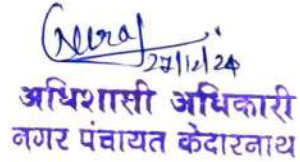 27/12/24
अधिशासी अधिकारी
नगर पंचायत केदारनाथ